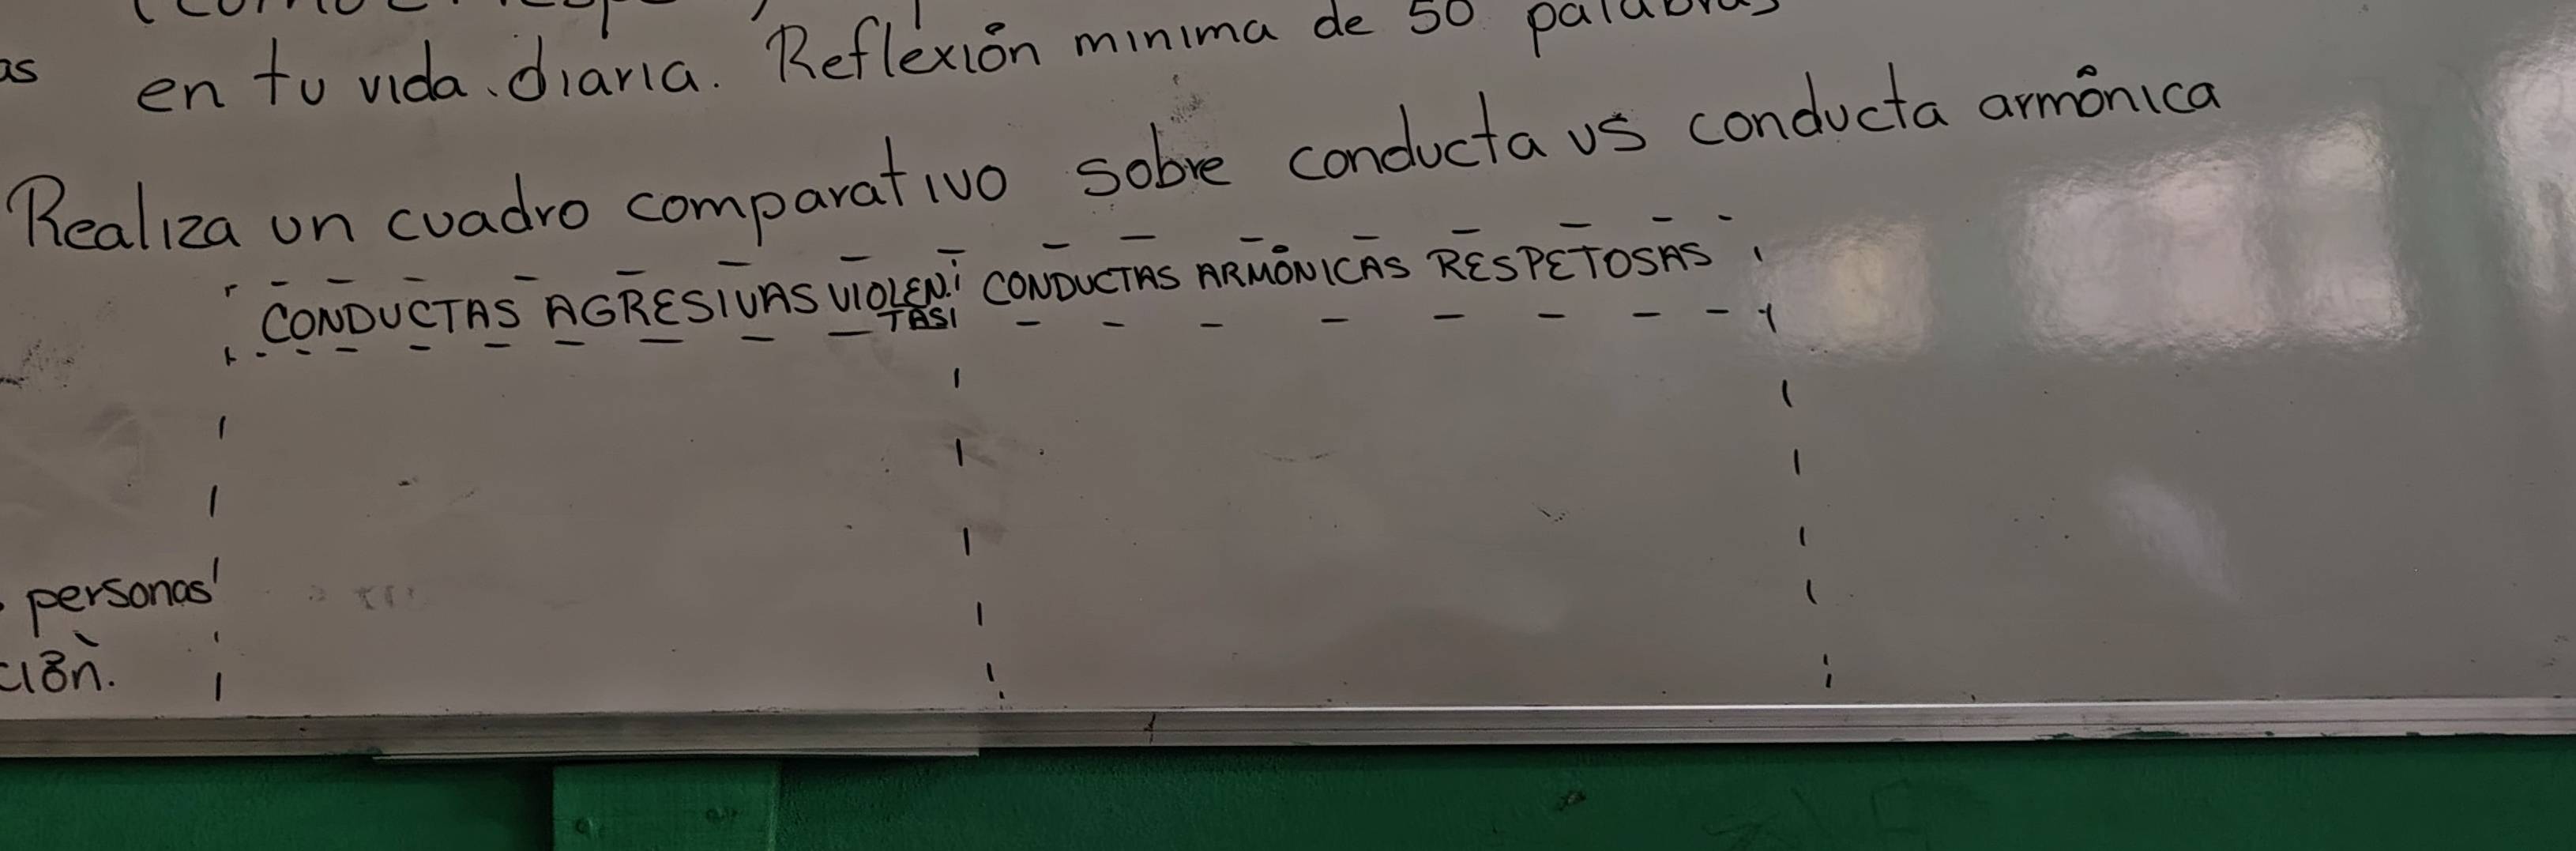 en tu vida diaria. Reflexión minima de 50 palabras
as
Realiza un cuadro comparativo sobre conducta vs conducta armónica
CONDUCTAS AGRESIVAS VIOLEN
TAS
CONDUCTAS ARMÓNICAS RESPETOSAS
personas
ción.